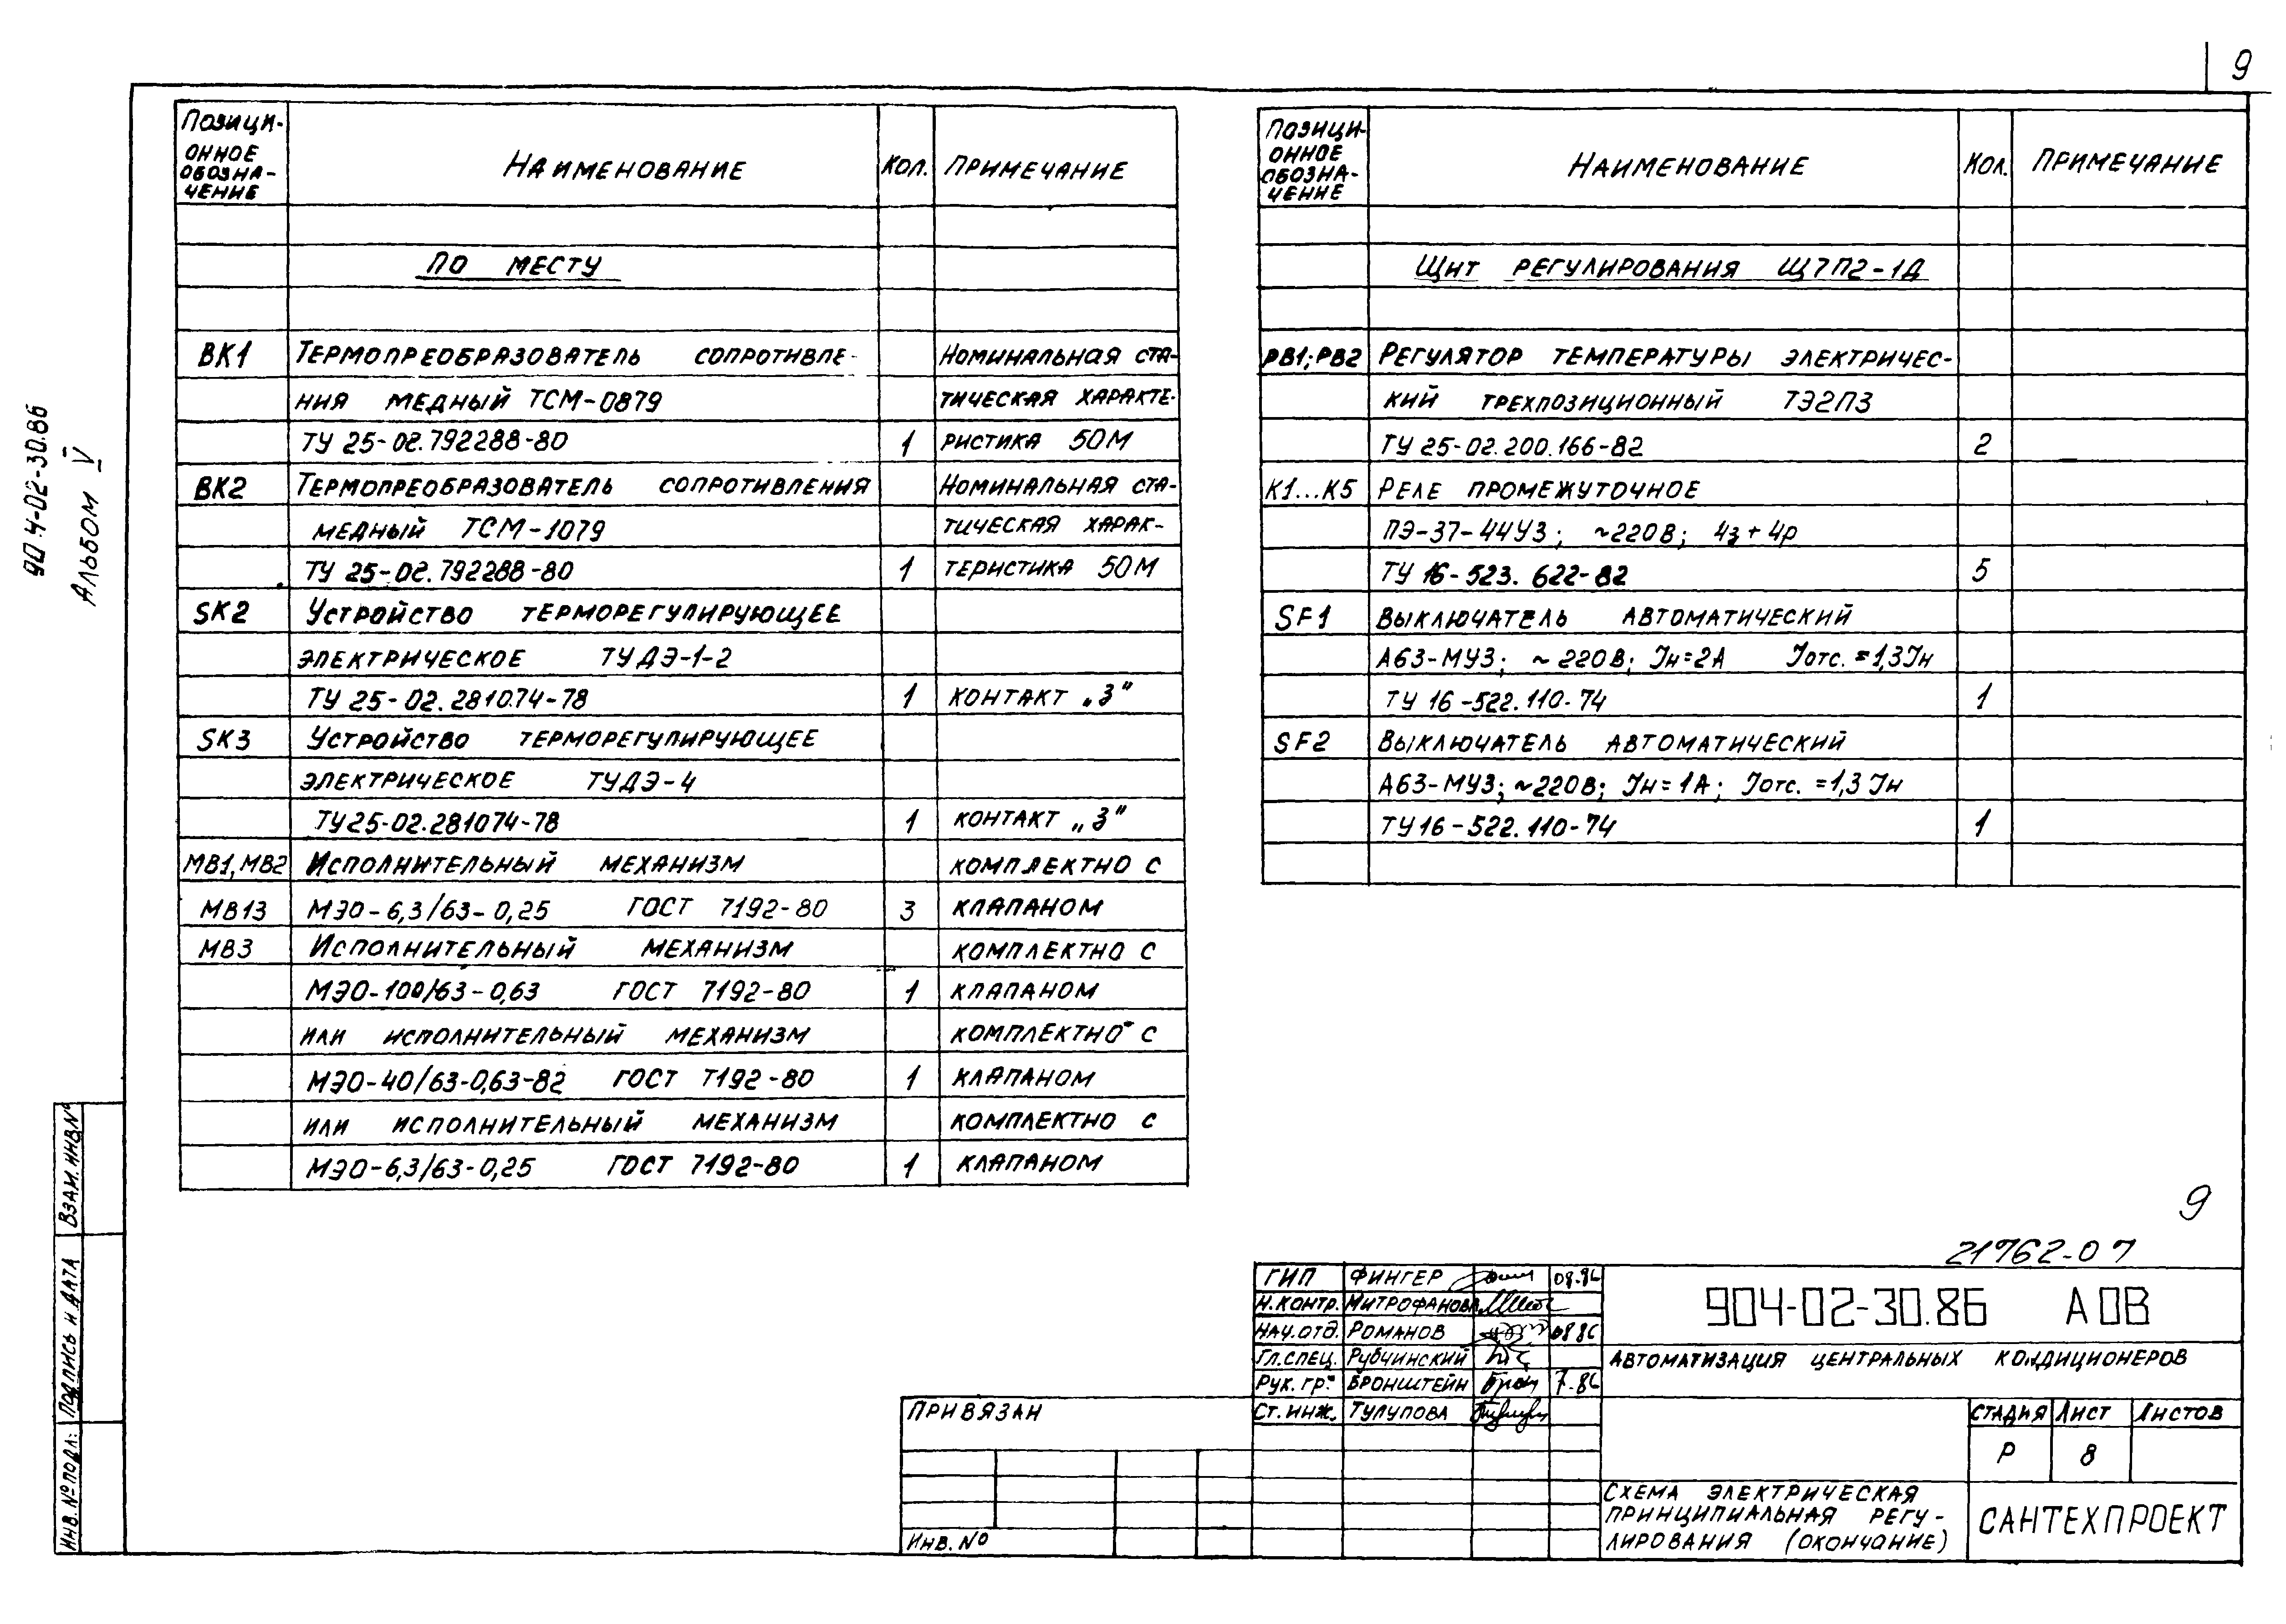 9
904-02-30.86
Альбом V
Позици-
онное
обозна-
чение
Наименование
Кол.
Примечание
По месту
ВК1 Термопреобразователь сопротивле- Номинальная ста-
ния медный ТСМ-0879 тическая характе-
ТУ 25-02.792288-80 1 ристика 50М
ВК2 Термопреобразователь сопротивления Номинальная ста-
медный ТСМ-1079 тическая харак-
ТУ 25-02.792288-80 1 теристика 50М
SK2 Устройство терморегулирующее
электрическое ТУДЭ-1-2
ТУ 25-02.281074-78 1 контакт „З"
SK3 Устройство терморегулирующее
электрическое ТУДЭ-4
ТУ25-02.281074-78 1 контакт „З"
МВ1,МВ2 Исполнительный механизм комплектно с
МВ13 МЭО-6,3/63-0,25 ГОСТ 7192-80 3 клапаном
МВ3 Исполнительный механизм комплектно с
МЭО-100/63-0,63 ГОСТ 7192-80 1 клапаном
или исполнительный механизм комплектно с
МЭО-40/63-0,63-82 ГОСТ 7192-80 1 клапаном
или исполнительный механизм комплектно с
МЭО-6,3/63-0,25 ГОСТ 7192-80 1 клапаном
Позици-
онное
обозна-
чение
Наименование
Кол.
Примечание
Щит регулирования Щ7П2-1Д
РВ1;РВ2 Регулятор температуры электричес-
кий трехпозиционный ТЭ2П3
ТУ 25-02.200.166-82 2
К1...К5 Реле промежуточное
ПЭ-37-44У3; ~220В; 4з+4р
ТУ 16-523.622-82 5
SF1 Выключатель автоматический
А63-МУ3; ~220В; Iн=2А Iотс.=1,3Iн
ТУ 16-522.110-74 1
SF2 Выключатель автоматический
А63-МУ3; ~220В; Iн=1А; Iотс.=1,3Iн
ТУ16-522.110-74 1
9
21762-07
ГИП Фингер 08.86
Н.контр. Митрофанова
Нач.отд. Романов 08 86
Гл.спец. Рубчинский
Рук. гр. Бронштейн 7.86
Ст.инж. Тулупова
904-02-30.86 АОВ
Автоматизация центральных кондиционеров
Стадия Лист Листов
Р 8
Схема электрическая
принципиальная регу-
лирования (окончание)
САНТЕХПРОЕКТ
Привязан
Инв. №
Взам. инв.№
Подпись и дата
Инв. № подл.